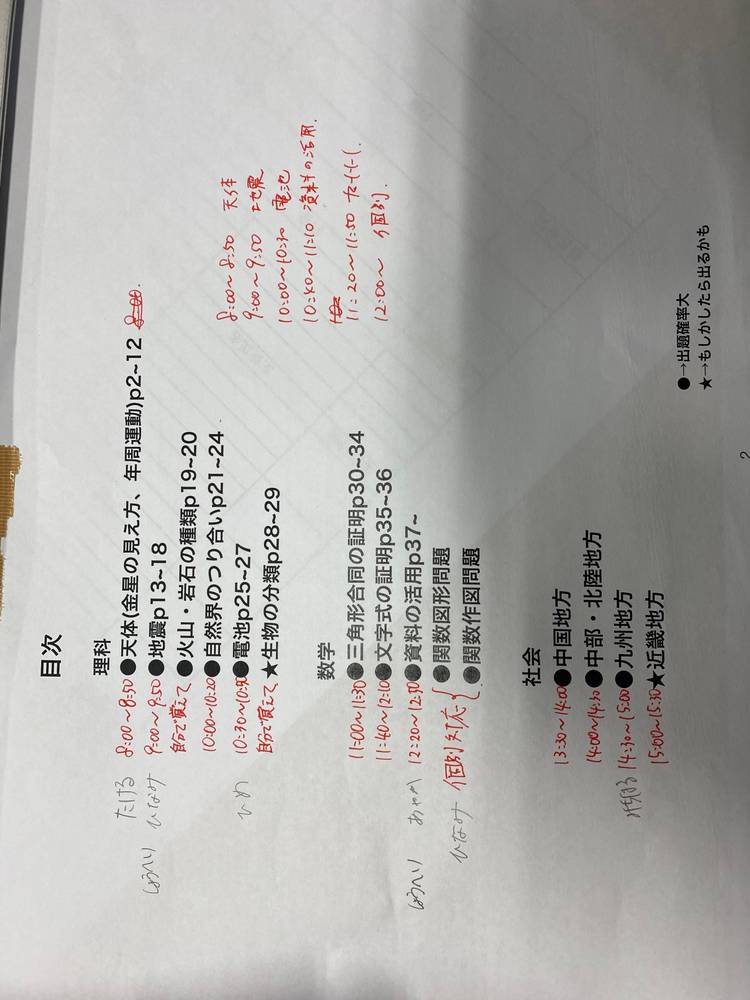 目次
理科
たける 8:00〜8:50 ●天体(金星の見え方、年周運動)p2~12
しょうへい ひなみ 9:00〜9:50 ●地震p13~18
自分で覚えて ●火山・岩石の種類p19~20
10:00〜10:20 ●自然界のつり合いp21~24
ひめ 10:30〜10:50 ●電池p25~27
自分で覚えて ★生物の分類p28~29
8:00〜8:50 天体
9:00〜9:50 地震
10:00〜10:30 電池
10:40〜11:10 資料の活用.
11:20〜11:50
12:00〜 個別.
数学
11:00〜11:30 ●三角形合同の証明p30~34
11:40〜12:10 ●文字式の証明p35~36
しょうへい あやめ 12:20〜12:50 ●資料の活用p37~
ひなみ 個別対応 ●関数図形問題
●関数作図問題
社会
13:30〜14:00 ●中国地方
14:00〜14:30 ●中部・北陸地方
14:30〜15:00 ●九州地方
15:00〜15:30 ★近畿地方
●→出題確率大
★→もしかしたら出るかも